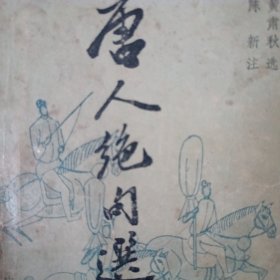 黄肃秋选
陈新注
唐人绝句選